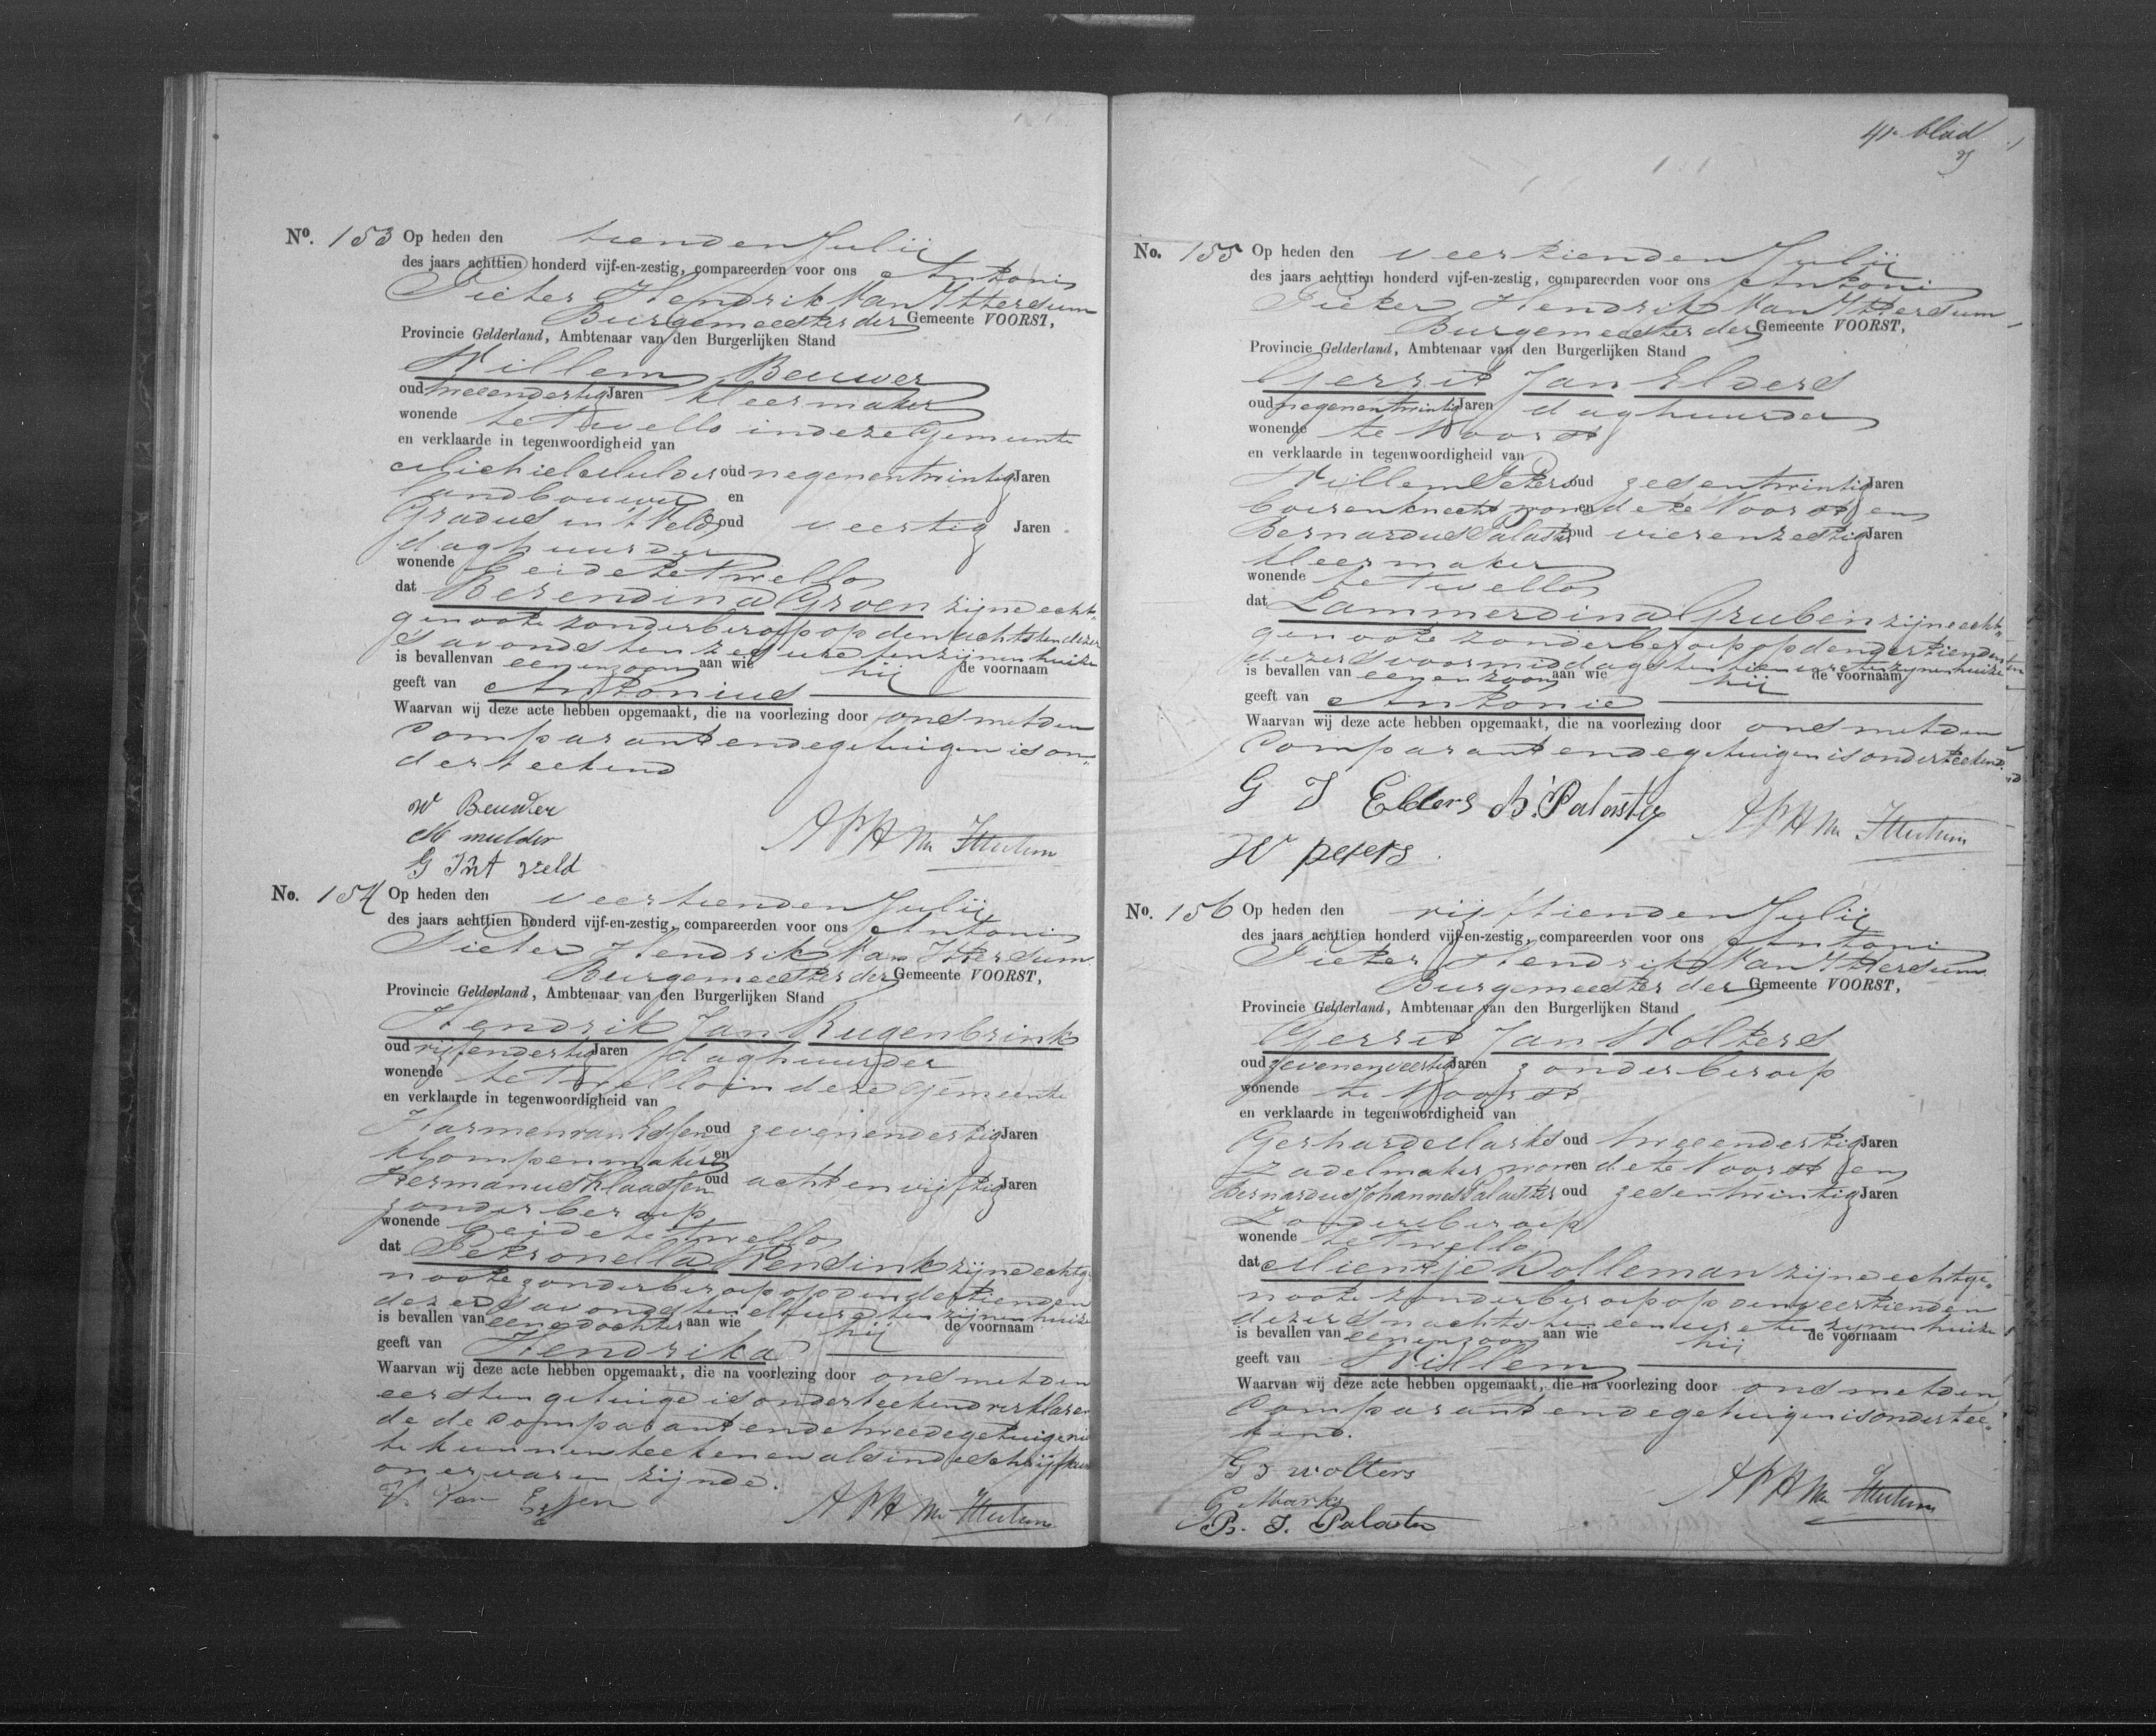 No. 153 Op heden den tienden Julij
des jaars achttien honderd vijf-en-zestig, compareerden voor ons Antoni
Pieter Hendrik Van Ittersum
Burgemeester der Gemeente VOORST,
Provincie Gelderland, Ambtenaar van den Burgerlijken Stand
Willem Beuwer
oud tweeendertig Jaren kleermaker
wonende te Twello in deze Gemeente
en verklaarde in tegenwoordigheid van
Michiel Mulder oud negenentwintig Jaren
landbouwer en
Gradus in 't Veld, oud veertig Jaren
daghuurder
wonende beide te Twello
dat Berendina Groen zijne echt„
genoote zonder beroep op den achtsten dezer
'savonds ten zes ure ten zijnen huize
is bevallen van eenen zoon aan wie hij de voornaam
geeft van Antonius
Waarvan wij deze acte hebben opgemaakt, die na voorlezing door ons met den
Comparant en de getuigen is on„
derteekend
W Beuwer
M mulder
G Int veld
APH van Ittersum
No. 154 Op heden den veertienden Julij
des jaars achttien honderd vijf-en-zestig, compareerden voor ons Antoni
Pieter Hendrik Van Ittersum
Burgemeester der Gemeente VOORST,
Provincie Gelderland, Ambtenaar van den Burgerlijken Stand
Hendrik Jan Rugenbrink
oud vijfendertig Jaren daghuurder
wonende te Twello in deze Gemeente
en verklaarde in tegenwoordigheid van
Harmen van Essen oud zevenendertig Jaren
klompenmaker en
Hermanus Klaassen oud achtenvijftig Jaren
zonder beroep
wonende beide te Twello
dat Petronella Wensink zijne echtge
noote zonder beroep op den dertienden
dezer 'savonds ten elf ure ten zijnen huize
is bevallen van eene dochter aan wie hij de voornaam
geeft van Hendrika
Waarvan wij deze acte hebben opgemaakt, die na voorlezing door ons met den
eersten getuige is onderteekend verklaren
de de Comparant en de tweede getuige niet
te kunnen teekenen als in de schrijfkunst
onervaren zijnde.
H. Van Essen
APH van Ittersum
41e blad
No. 155 Op heden den veertienden Julij
des jaars achttien honderd vijf-en-zestig, compareerden voor ons Antoni
Pieter Hendrik Van Ittersum
Burgemeester der Gemeente VOORST,
Provincie Gelderland, Ambtenaar van den Burgerlijken Stand
Gerrit Jan Elders
oud negenentwintig Jaren daghuurder
wonende te Voorst
en verklaarde in tegenwoordigheid van
Willem Peters oud zesentwintig Jaren
boerenknecht wonende te Voorst en
Bernardus Palaster oud vierenzestig Jaren
kleermaker
wonende te Twello
dat Lammerdina Gruben zijne echt„
genoote zonder beroep op den dertienden
dezer 'svoormiddags ten tien ure ten zijnen huize
is bevallen van eenen zoon aan wie hij de voornaam
geeft van Antonie
Waarvan wij deze acte hebben opgemaakt, die na voorlezing door ons met den
Comparant en de getuigen is onderteekend.
G J Elders B. Palaster
W peters
APH van Ittersum
No. 156 Op heden den vijftienden Julij
des jaars achttien honderd vijf-en-zestig, compareerden voor ons Antoni
Pieter Hendrik Van Ittersum
Burgemeester der Gemeente VOORST,
Provincie Gelderland, Ambtenaar van den Burgerlijken Stand
Gerrit Jan Wolters
oud zevenenveertig Jaren zonder beroep
wonende te Voorst
en verklaarde in tegenwoordigheid van
Gerhard Marks oud tweeendertig Jaren
zadelmaker wonende te Voorst en
Bernardus Johannes Palaster oud zesentwintig Jaren
zonder beroep
wonende te Twello
dat Mientje Dolleman zijne echtge„
noote zonder beroep op den veertienden
dezer 'snachts ten een ure ten zijnen huize
is bevallen van eenen zoon aan wie hij de voornaam
geeft van Willem
Waarvan wij deze acte hebben opgemaakt, die na voorlezing door ons met den
Comparant en de getuigen is onderteе„
kend.
G J wolters
G. Marks
B. J. Palaster
APH van Ittersum